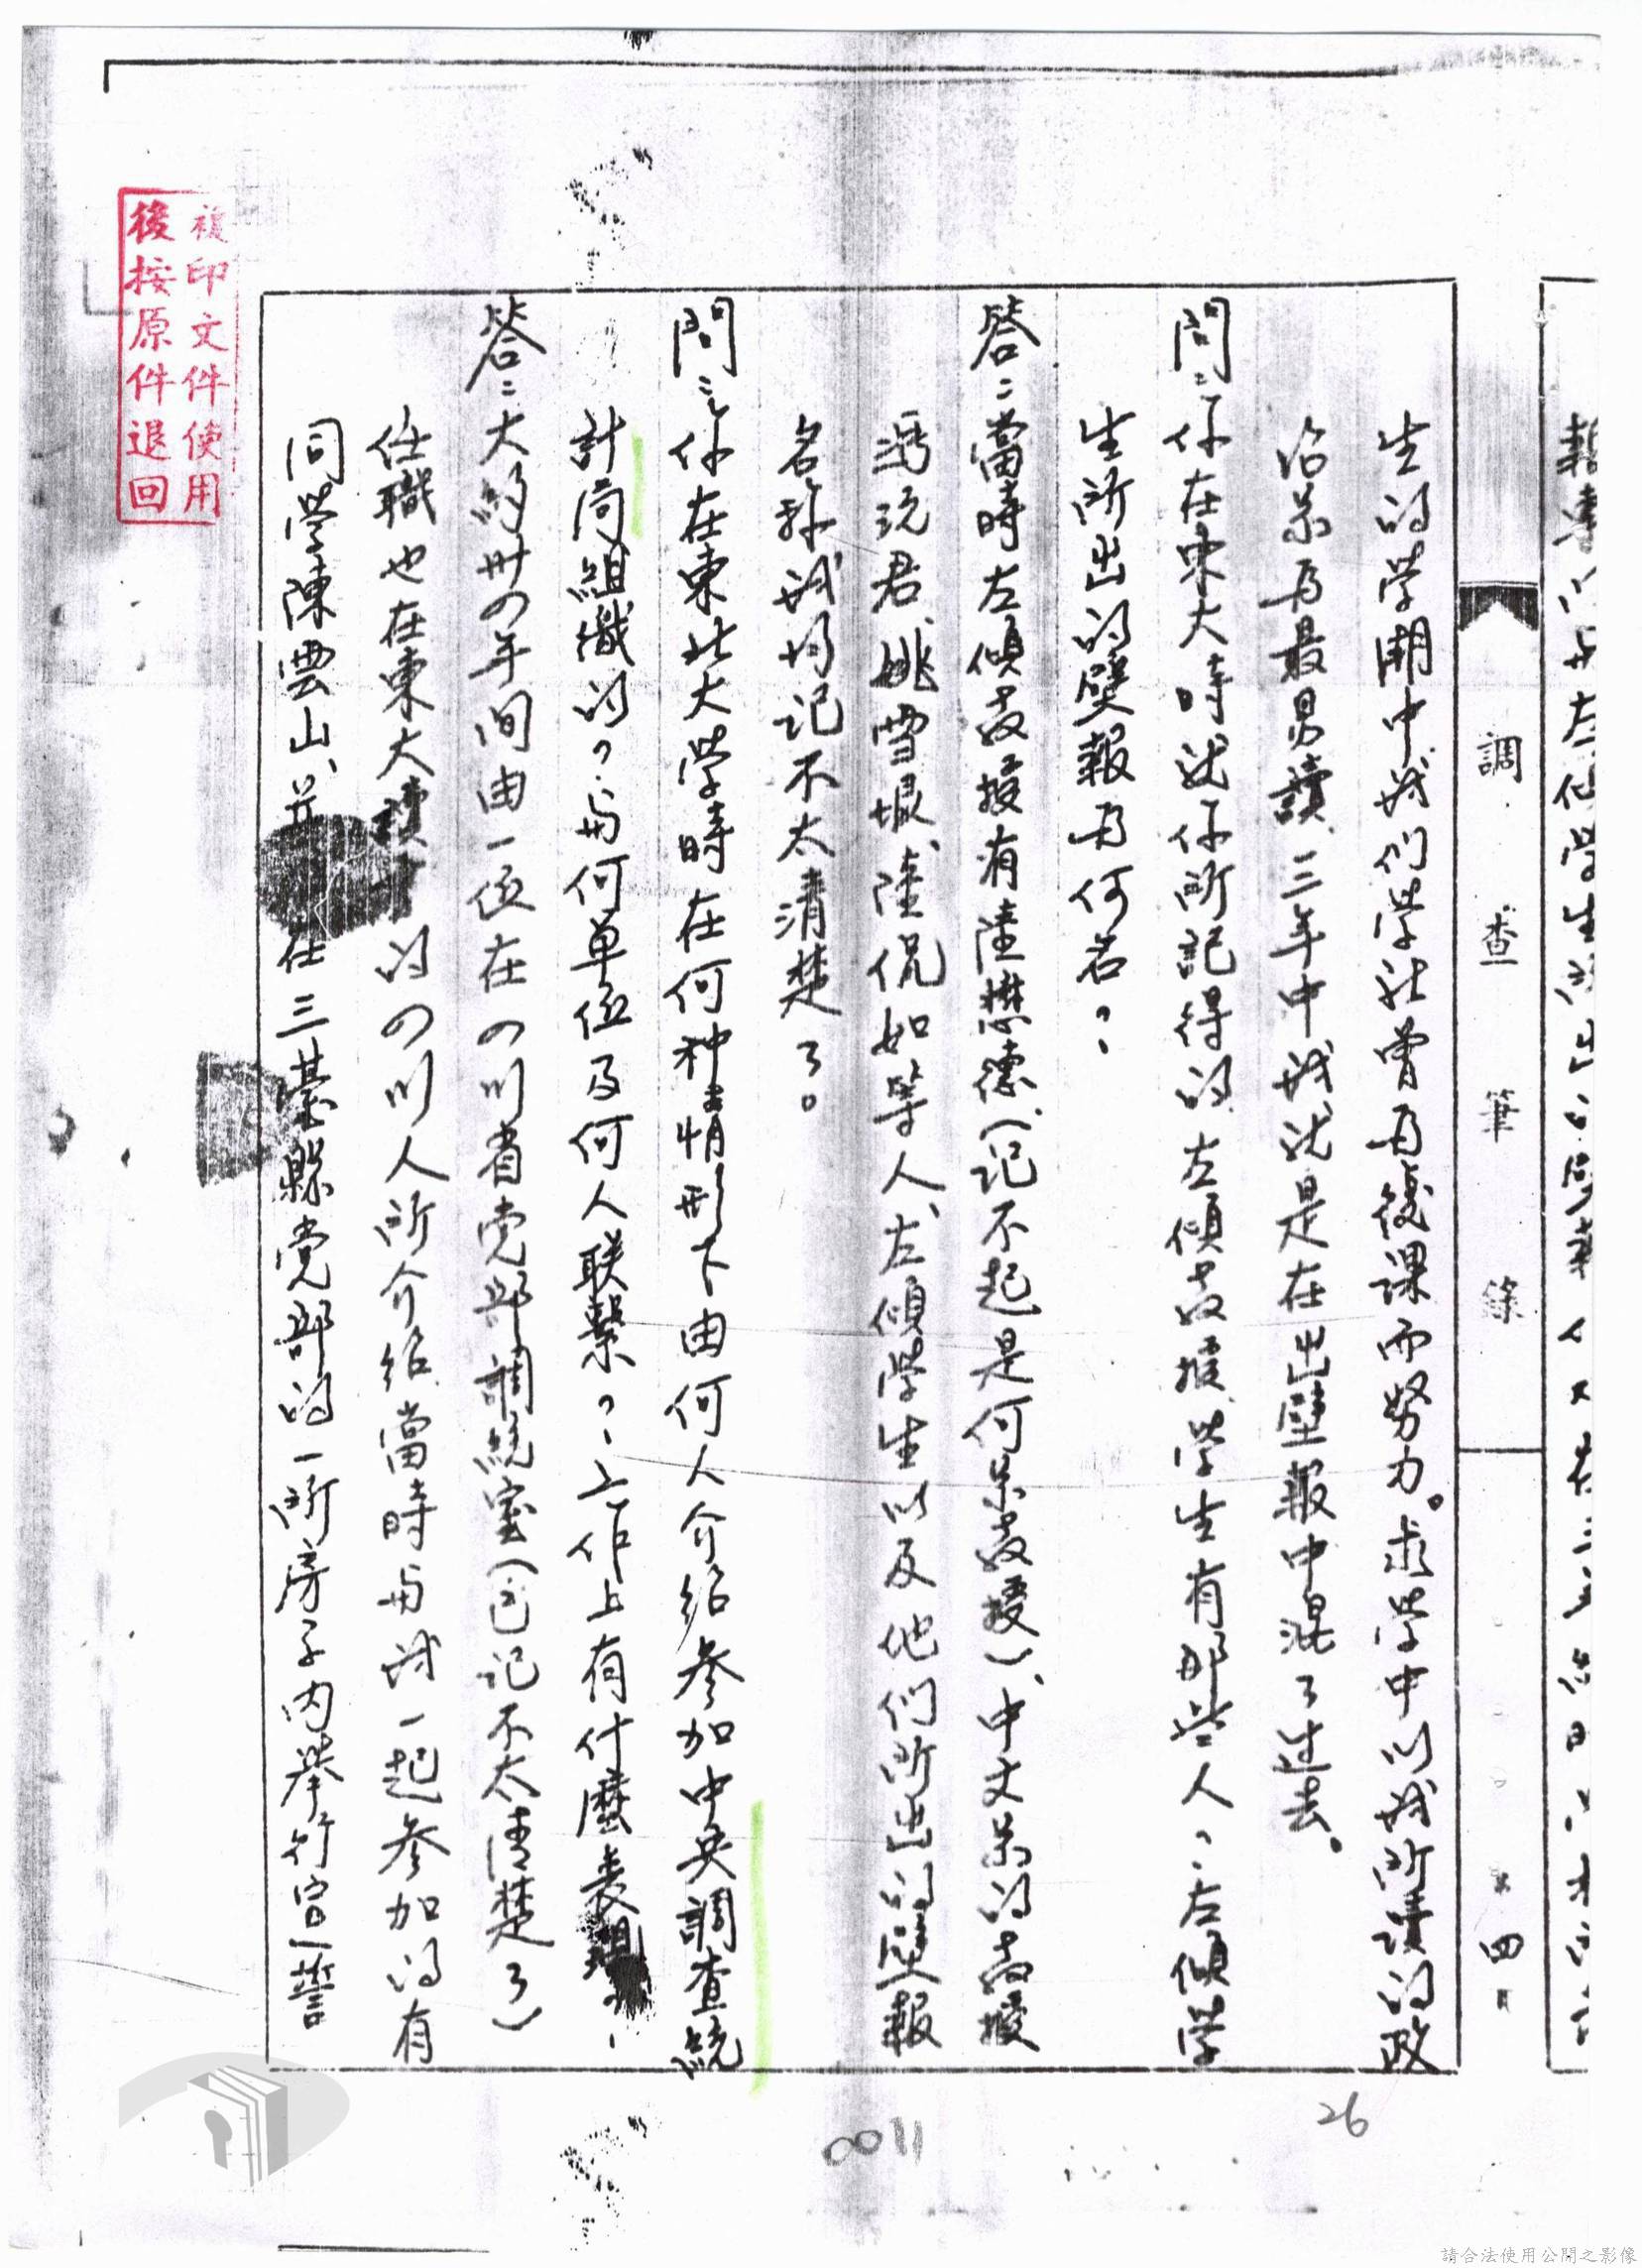 調查筆錄
四
生的学潮中我们学社曾为復課而努力。求学中以我所讀的政
治系为最易讀，三年中我就是在出壁報中混了过去。
問：你在東大時就你所記得的左傾教授学生有那些人？左傾学
生所出的壁報为何名？
答：當時左傾教授有陸懋德（记不起是何系教授）、中文系的教授
馮沅君、姚雪垠、陸侃如等人、左傾学生以及他们所出的壁報
名称我均记不太清楚了。
問：你在東北大学時在何种情形下由何人介绍参加中央調查統
計局組織的？与何单位及何人联繫？工作上有什麼表現？
答：大約卅四年间由一位在四川省党部調統室（已记不太清楚了）
任職也在東大讀書的四川人所介绍當時与我一起参加的有
同学陳雲山、並在三臺縣党部的一所房子内舉行宣誓
複印文件使用
後按原件退回
26
0011
請合法使用公開之影像